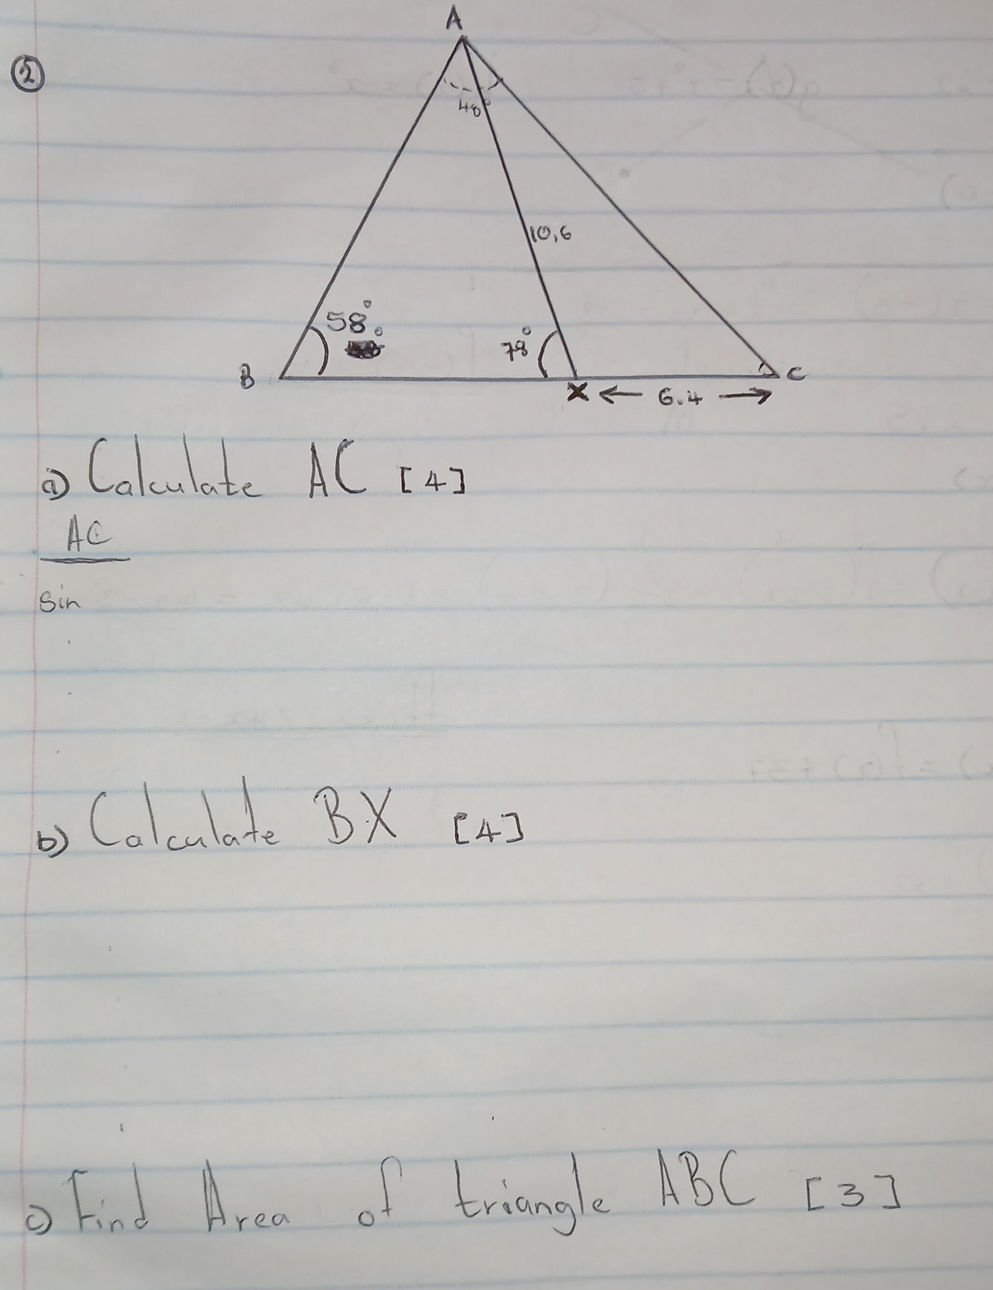 ②
A
48°
10,6
58°
78°
B
X
← 6.4 →
C
a) Calculate AC [4]
AC
sin
b) Calculate BX [4]
c) Find Area of triangle ABC [3]